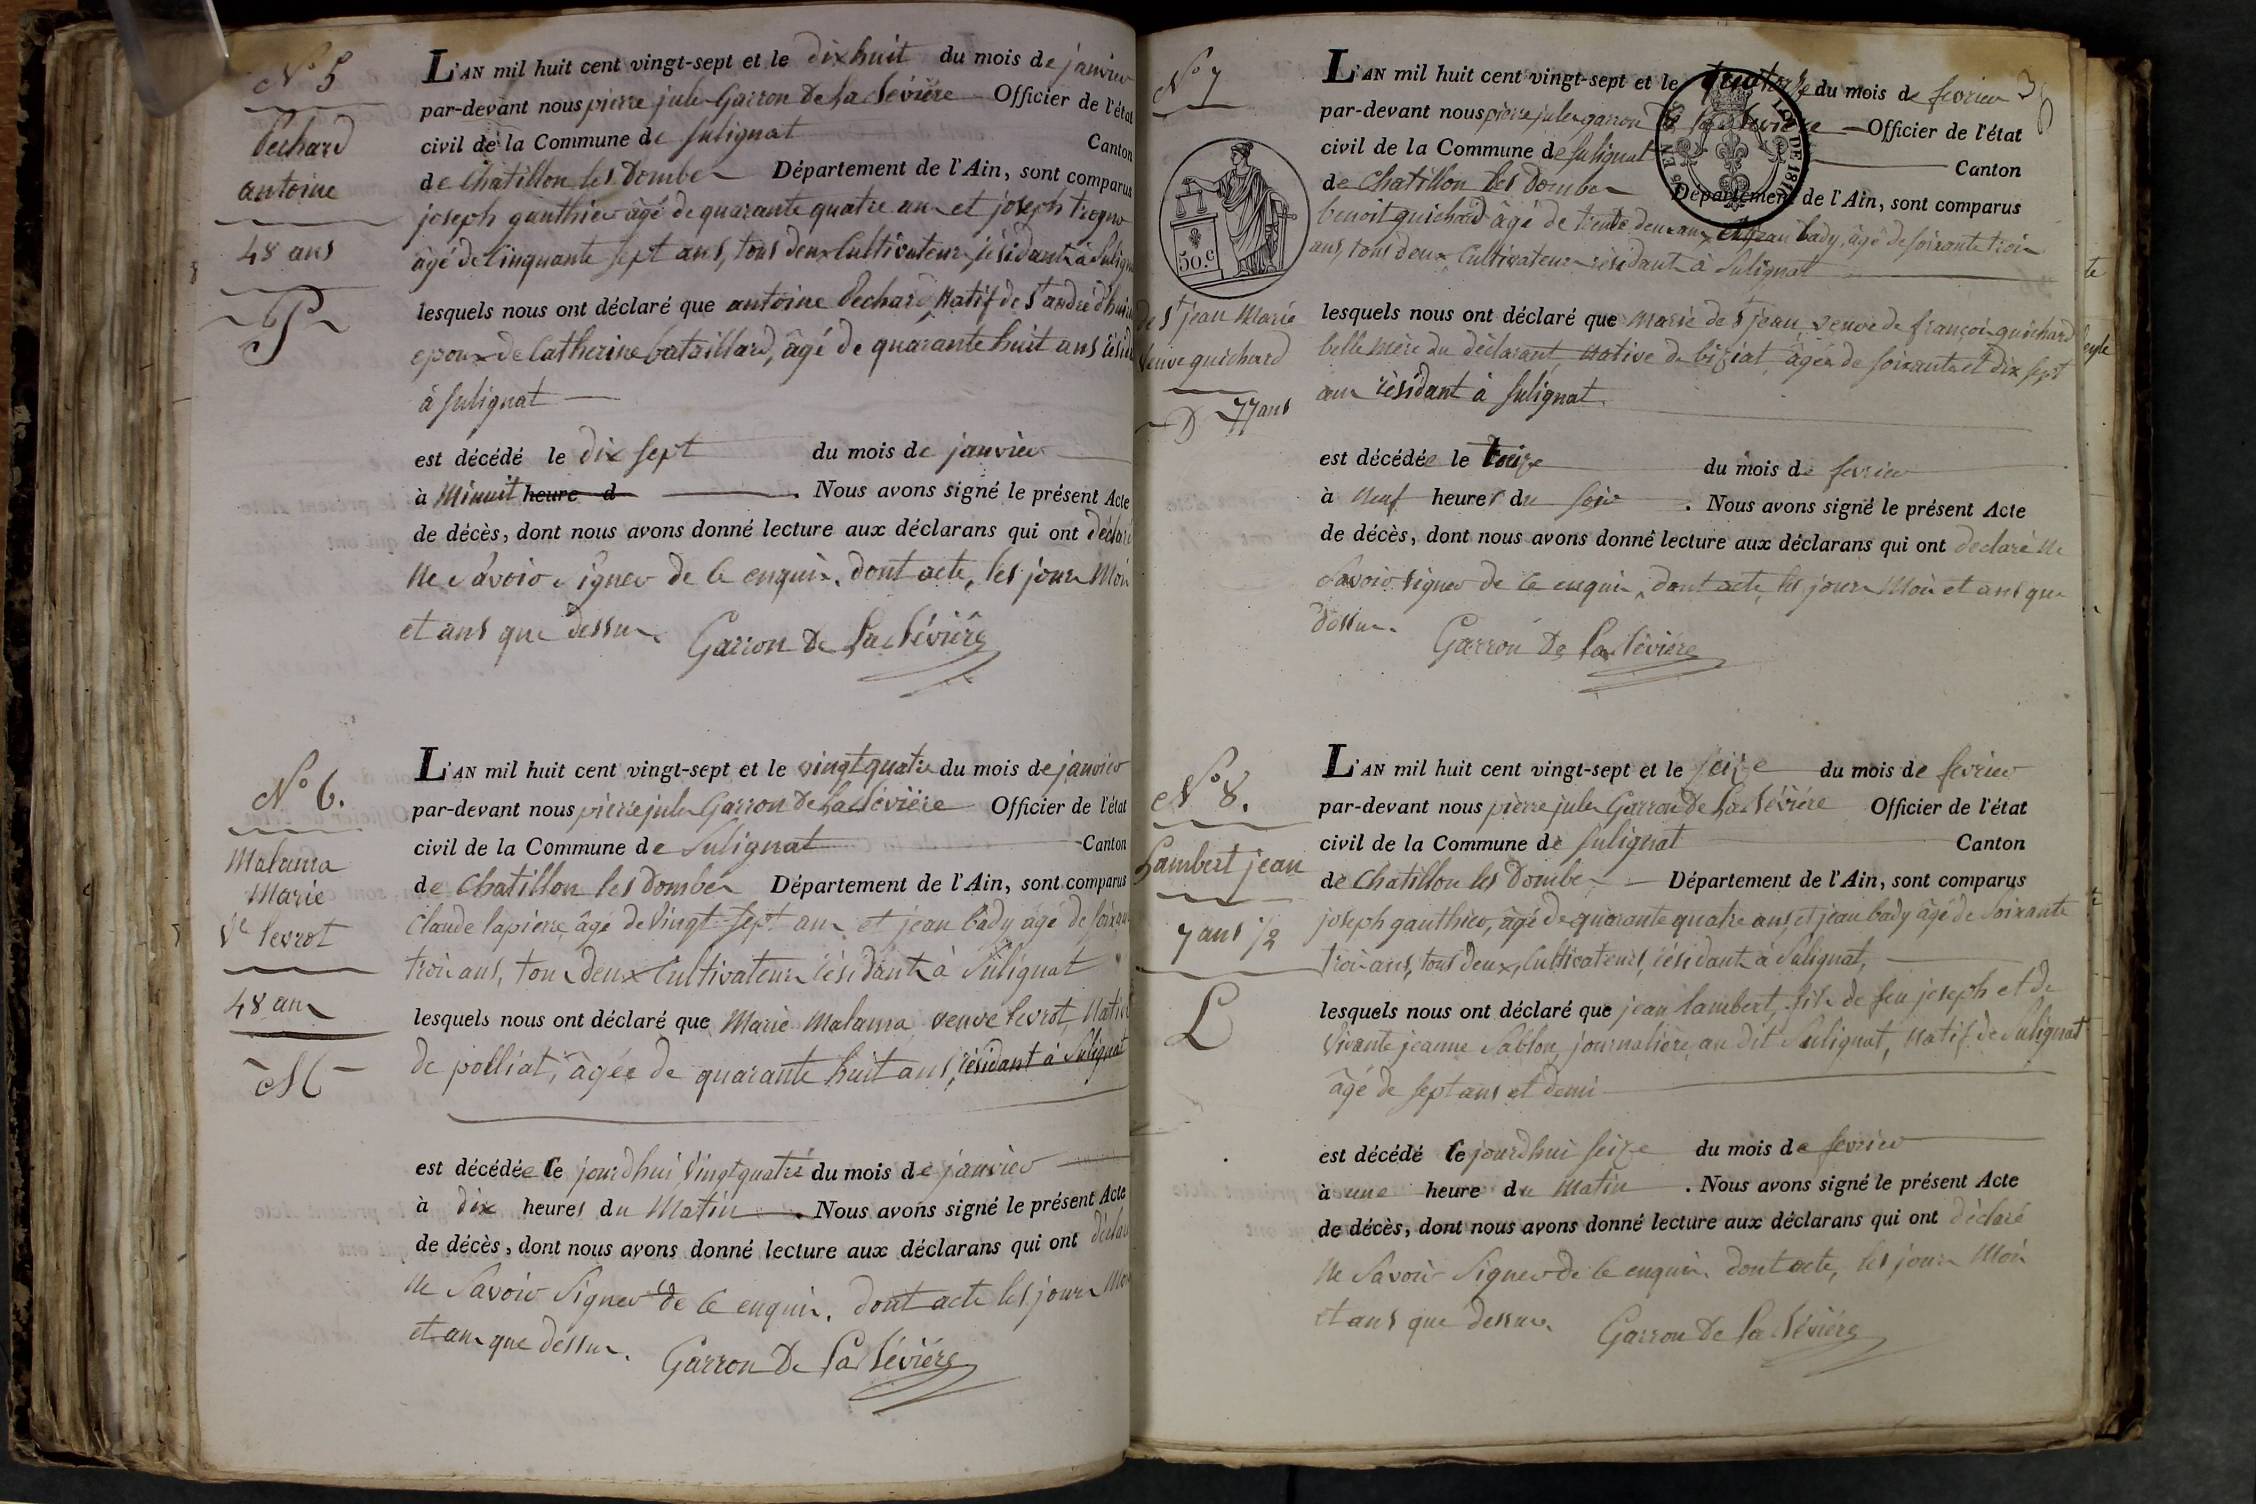 N° 5
Pechard
antoine
48 ans
P
L'AN mil huit cent vingt-sept et le dix huit du mois de janvier
par-devant nous pierre jules Garron De La Sévière Officier de l'état
civil de la Commune de Sulignat Canton
de Chatillon les Dombes Département de l'Ain, sont comparus
joseph gauthier âgé de quarante quatre ans et joseph
âgé de Cinquante sept ans, tous deux Cultivateurs, résidants à Sulign
lesquels nous ont déclaré que antoine Pechard, Natif de St andré
epoux de Catherine bataillard, âgé de quarante huit ans résid
à Sulignat
est décédé le dix sept du mois de janvier
à Minuit heure d . Nous avons signé le présent Acte
de décès, dont nous avons donné lecture aux déclarans qui ont déclaré
ne Savoir Signer de Ce enquis, dont acte, les jours Mois
et ans que dessus. Garron De La Sévière
N° 6.
Malama
Marie
Ve levrot
48 ans
M
L'AN mil huit cent vingt-sept et le vingt quatre du mois de janvier
par-devant nous pierre jules Garron De La Sévière Officier de l'état
civil de la Commune de Sulignat Canton
de Chatillon les Dombes Département de l'Ain, sont comparus
Claude lapierre, âgé de Vingt Sept ans et jean bady âgé de Soixan
trois ans, tous deux Cultivateurs résidants à Sulignat
lesquels nous ont déclaré que Marie Malama veuve levrot, Native
de polliat, âgée de quarante huit ans, résidant à Sulignat
est décédée Ce jourd'hui Vingt quatre du mois de janvier
à dix heures du Matin . Nous avons signé le présent Acte
de décès, dont nous avons donné lecture aux déclarans qui ont déclar
ne Savoir Signer de Ce enquis. dont acte les jours Moi
et ans que dessus. Garron De La Sévière
N° 7
50.c
de St jean Marie
Veuve guichard
77 ans
D
L'AN mil huit cent vingt-sept et le quatorze du mois de fevrier
par-devant nous pierre jules garron De La Sévière Officier de l'état
civil de la Commune de Sulignat Canton
de Chatillon les Dombes Département de l'Ain, sont comparus
benoit guichard âgé de trente deux ans et jean bady, âgé de soixante trois
ans, tous deux Cultivateurs résidants à Sulignat
lesquels nous ont déclaré que Marie de St jean, veuve de françois guichard
belle Mère du déclarant, Native de biziat, âgée de soixante et dix sept
ans résidant à Sulignat.
est décédée le treize du mois de fevrier
à Neuf heures du soir . Nous avons signé le présent Acte
de décès, dont nous avons donné lecture aux déclarans qui ont déclaré ne
Savoir signer de Ce enquis, dont acte, les jours Mois et ans que
dessus. Garron De La Sévière
N° 8.
Lambert jean
7 ans 1/2
L
L'AN mil huit cent vingt-sept et le seize du mois de fevrier
par-devant nous pierre jules Garron De La Sévière Officier de l'état
civil de la Commune de Sulignat Canton
de Chatillon les Dombes Département de l'Ain, sont comparus
joseph gauthier, âgé de quarante quatre ans, et jean bady âgé de Soixante
trois ans, tous deux, Cultivateurs, résidants à Sulignat,
lesquels nous ont déclaré que jean lambert, fils de feu joseph et de
Vivante jeanne Sablon, journalière au dit Sulignat, Natif de Sulignat
âgé de sept ans et demi
est décédé Ce jourd'hui seize du mois de fevrier
à une heure du Matin . Nous avons signé le présent Acte
de décès, dont nous avons donné lecture aux déclarans qui ont déclaré
ne Savoir Signer de Ce enquis. dont acte, les jours Mois
et ans que dessus. Garron De La Sévière